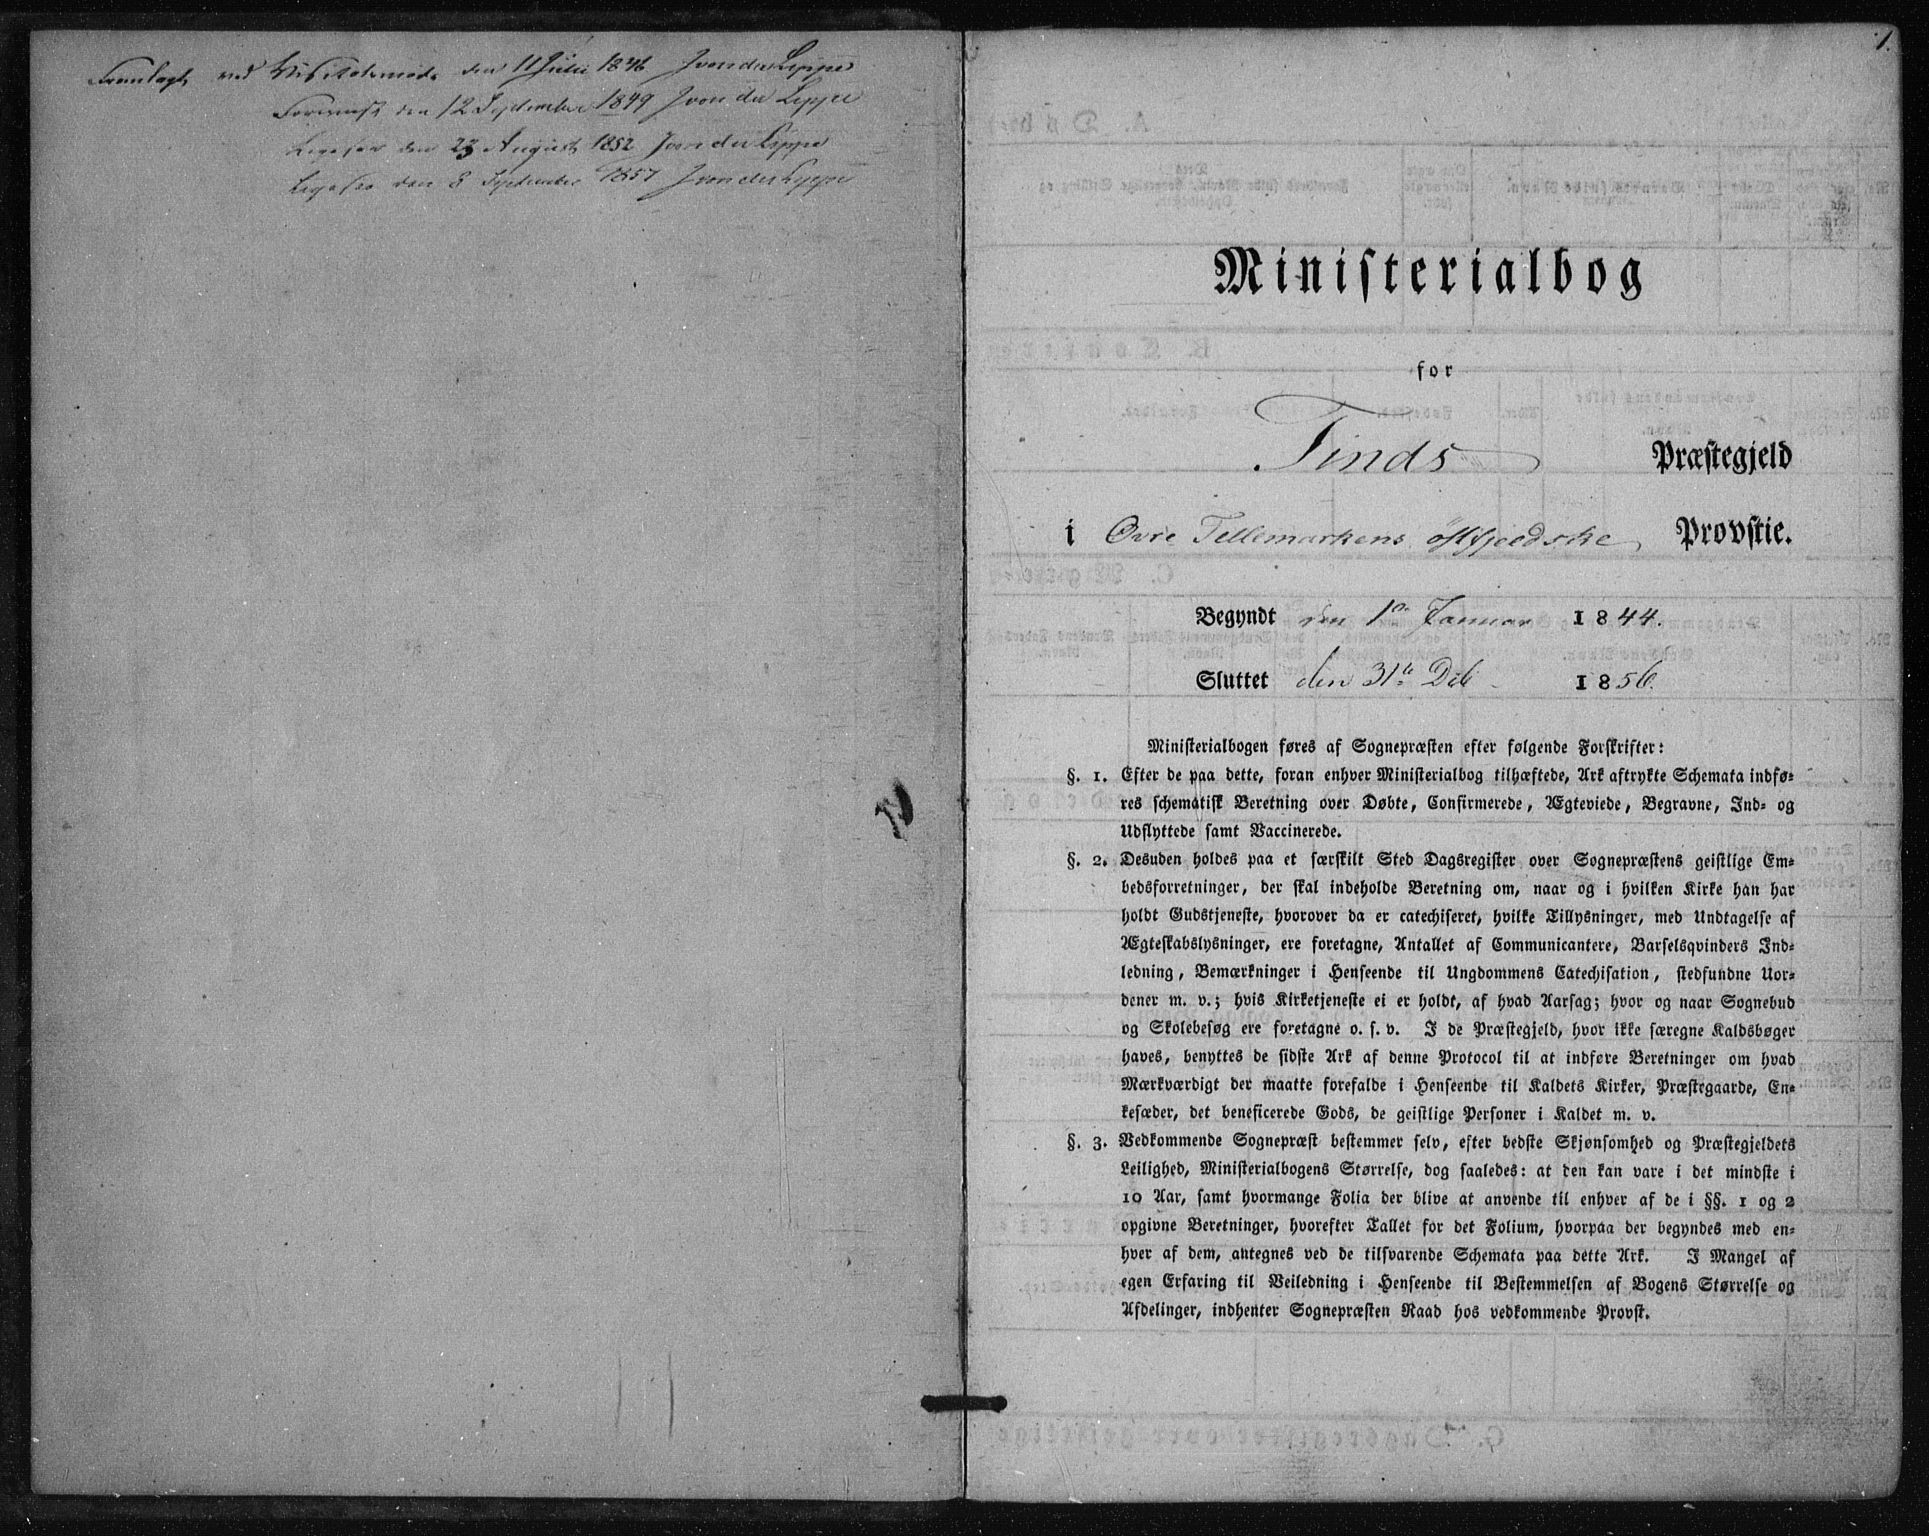 Fremlagt ved Visitatsmøde den 11 Julii 1846 J von der Lippe
Foreviist den 12 September 1849 J von der Lippe
Ligesaa den 23 August 1852 J von der Lippe
Ligesaa den 8 September 1857 J von der Lippe
1.
Ministerialbog
for
Tinds Præstegjeld
i Øvre Tellemarkens østfjeldske Provstie.
Begyndt den 1ste Januar 1844.
Sluttet den 31te Deb 1856.
Ministerialbogen føres af Sognepræsten efter følgende Forskrifter:
§. 1. Efter de paa dette, foran enhver Ministerialbog tilhæftede, Ark aftrykte Schemata indfø-
res schematisk Beretning over Døbte, Confirmerede, Ægteviede, Begravne, Ind- og
Udflyttede samt Vaccinerede.
§. 2. Desuden holdes paa et særskilt Sted Dagsregister over Sognepræstens geistlige Em-
bedsforretninger, der skal indeholde Beretning om, naar og i hvilken Kirke han har
holdt Gudstjeneste, hvorover da er catechiseret, hvilke Tillysninger, med Undtagelse af
Ægteskabslysninger, ere foretagne, Antallet af Communicantere, Barselsqvinders Ind-
ledning, Bemærkninger i Henseende til Ungdommens Catechisation, stedfundne Uor-
dener m. v.; hvis Kirketjeneste ei er holdt, af hvad Aarsag; hvor og naar Sognebud
og Skolebesøg ere foretagne o. s. v. I de Præstegjeld, hvor ikke særegne Kaldsbøger
haves, benyttes de sidste Ark af denne Protocol til at indføre Beretninger om hvad
Mærkværdigt der maatte forefalde i Henseende til Kaldets Kirker, Præstegaarde, En-
kesæder, det beneficerede Gods, de geistlige Personer i Kaldet m. v.
§. 3. Vedkommende Sognepræst bestemmer selv, efter bedste Skjønsomhed og Præstegjeldets
Leilighed, Ministerialbogens Størrelse, dog saaledes: at den kan vare i det mindste i
10 Aar, samt hvormange Folia der blive at anvende til enhver af de i §§. 1 og 2
opgivne Beretninger, hvorefter Tallet for det Folium, hvorpaa der begyndes med en-
hver af dem, antegnes ved de tilsvarende Schemata paa dette Ark. I Mangel af
egen Erfaring til Veiledning i Henseende til Bestemmelsen af Bogens Størrelse og
Afdelinger, indhenter Sognepræsten Raad hos vedkommende Provst.